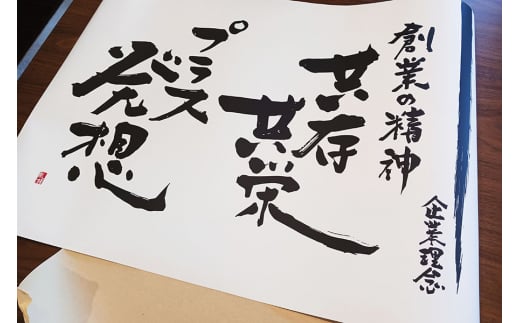 企業理念
創業の精神
共存
共栄
プラス
発想